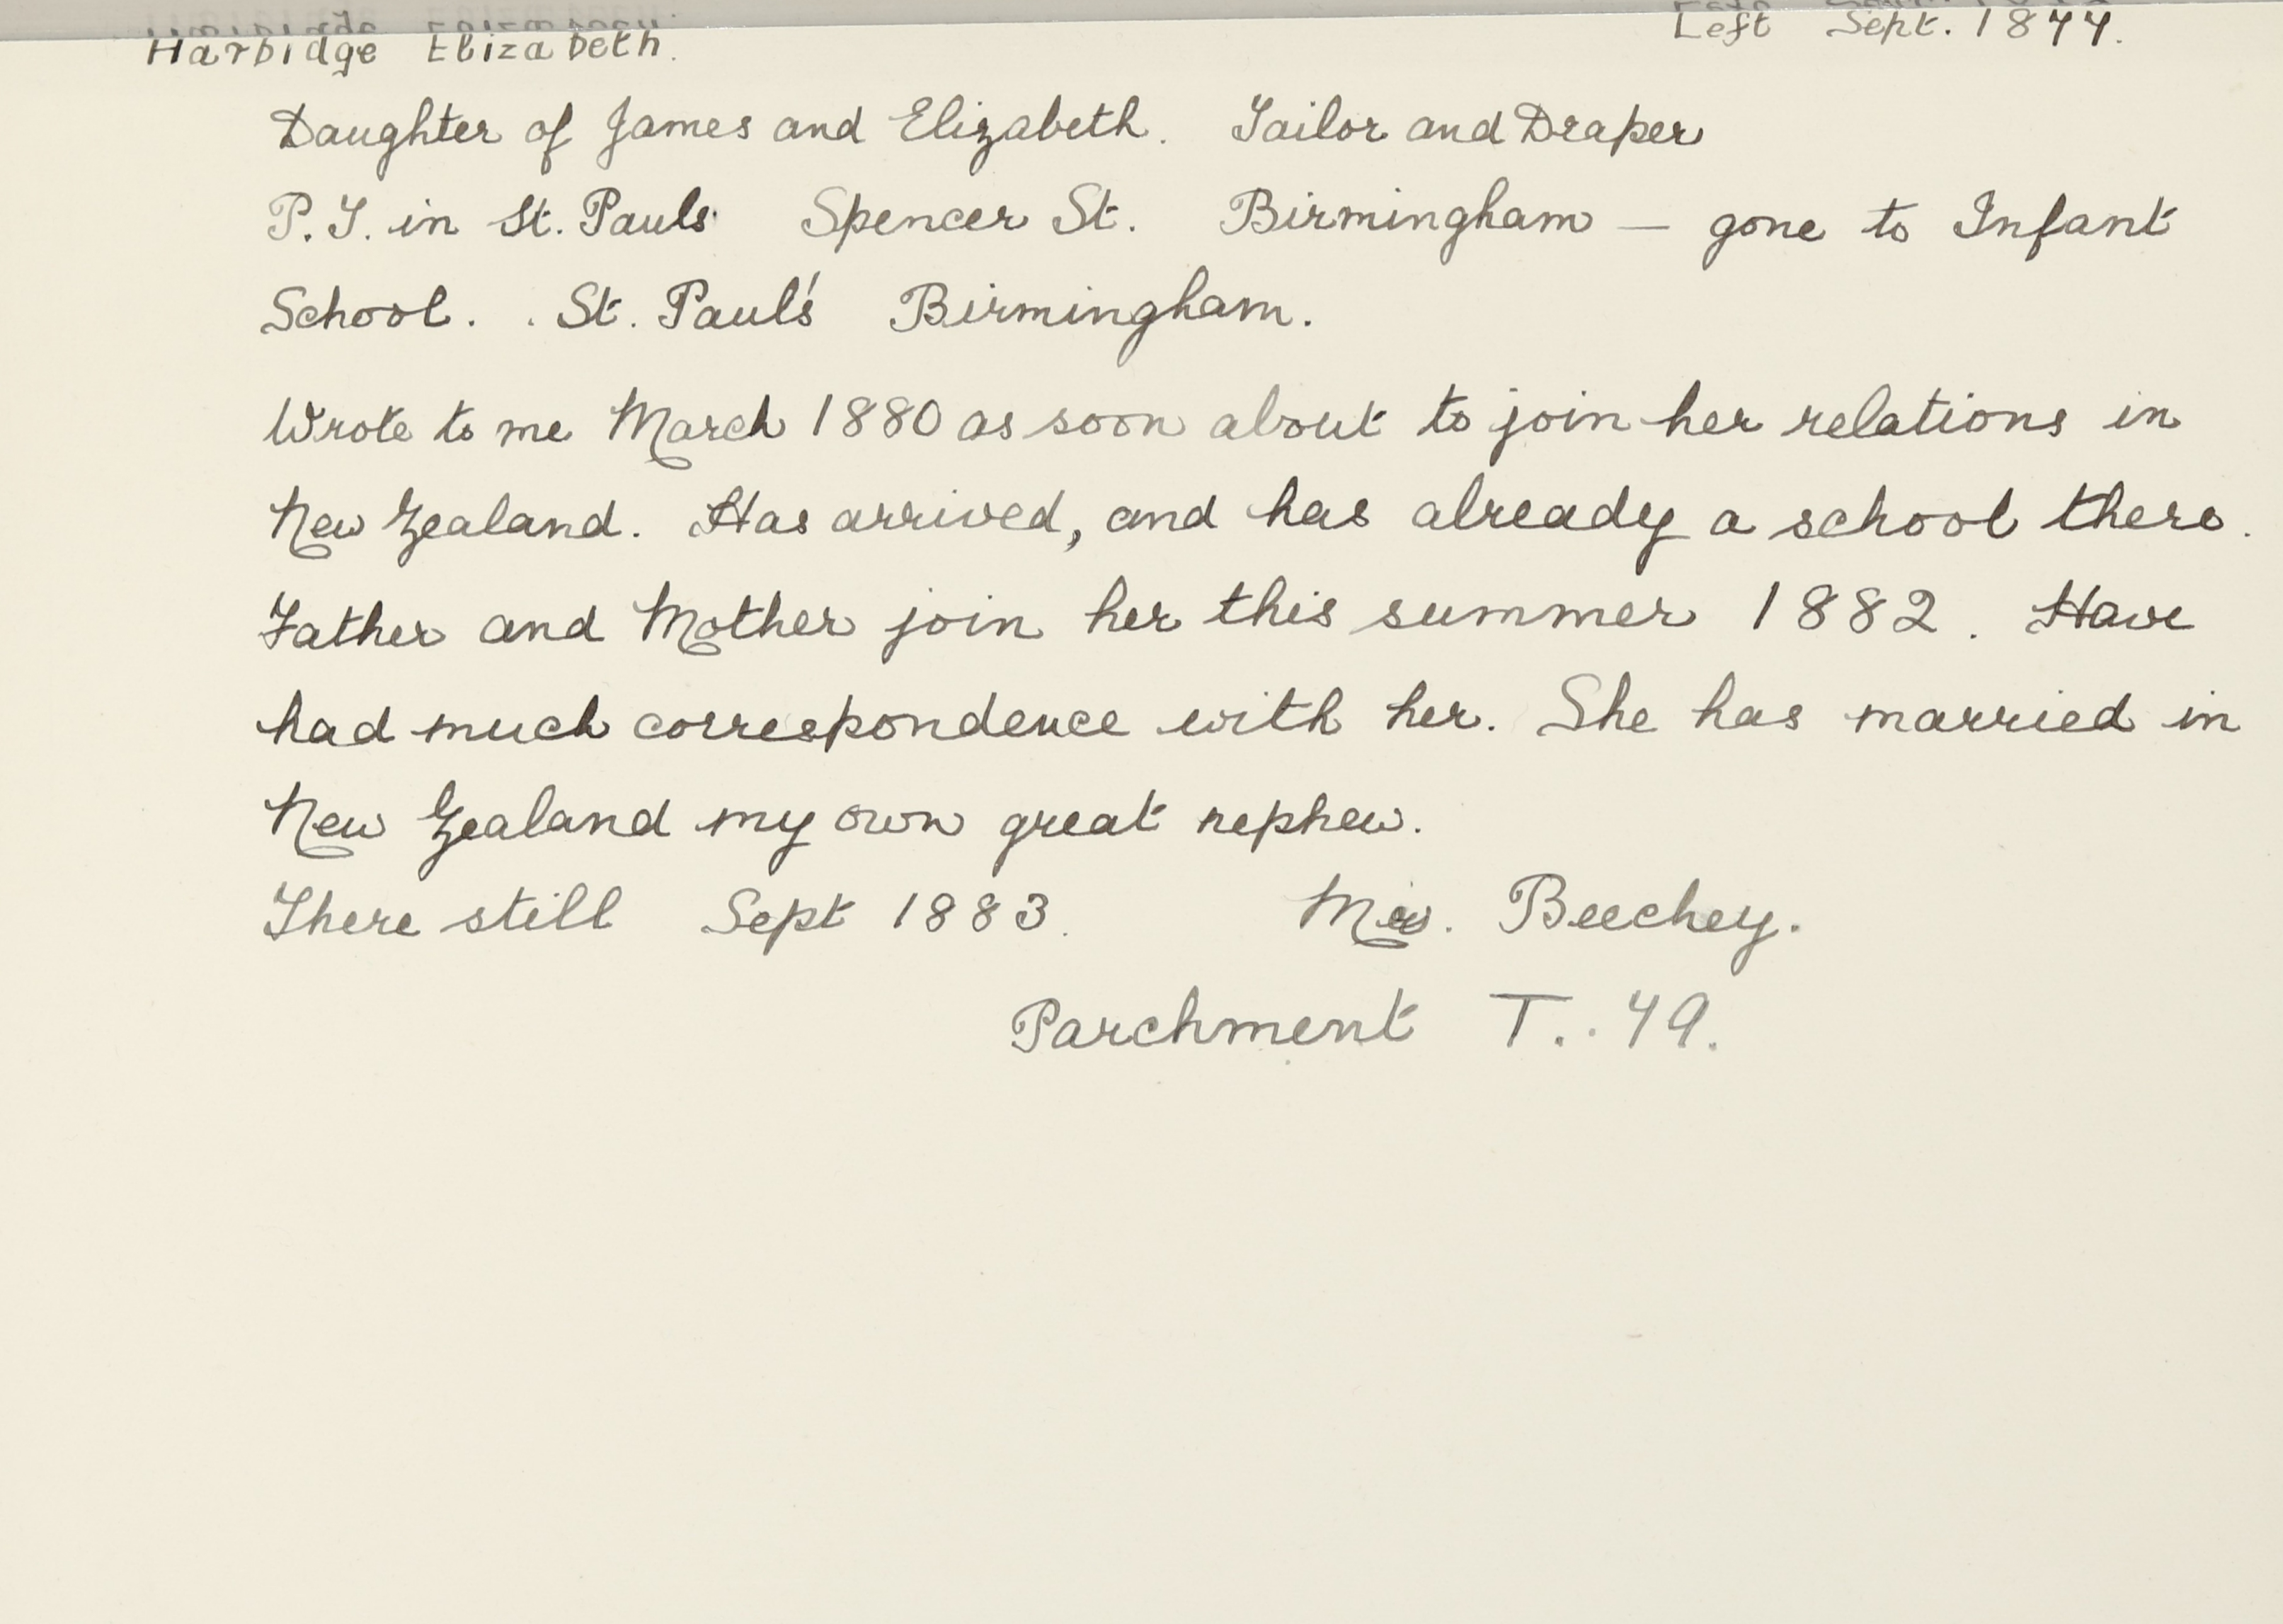 Harbidge Elizabeth. Left Sept. 1877.
Daughter of James and Elizabeth. Tailor and Draper
P.T. in St. Pauls Spencer St. Birmingham — gone to Infant
School. . St. Paul's Birmingham.
Wrote to me March 1880 as soon about to join her relations in
New Zealand. Has arrived, and has already a school there.
Father and Mother join her this summer 1882. Have
had much correspondence with her. She has married in
New Zealand my own great nephew.
There still Sept 1883. Mrs. Beechey.
Parchment T. . 79.